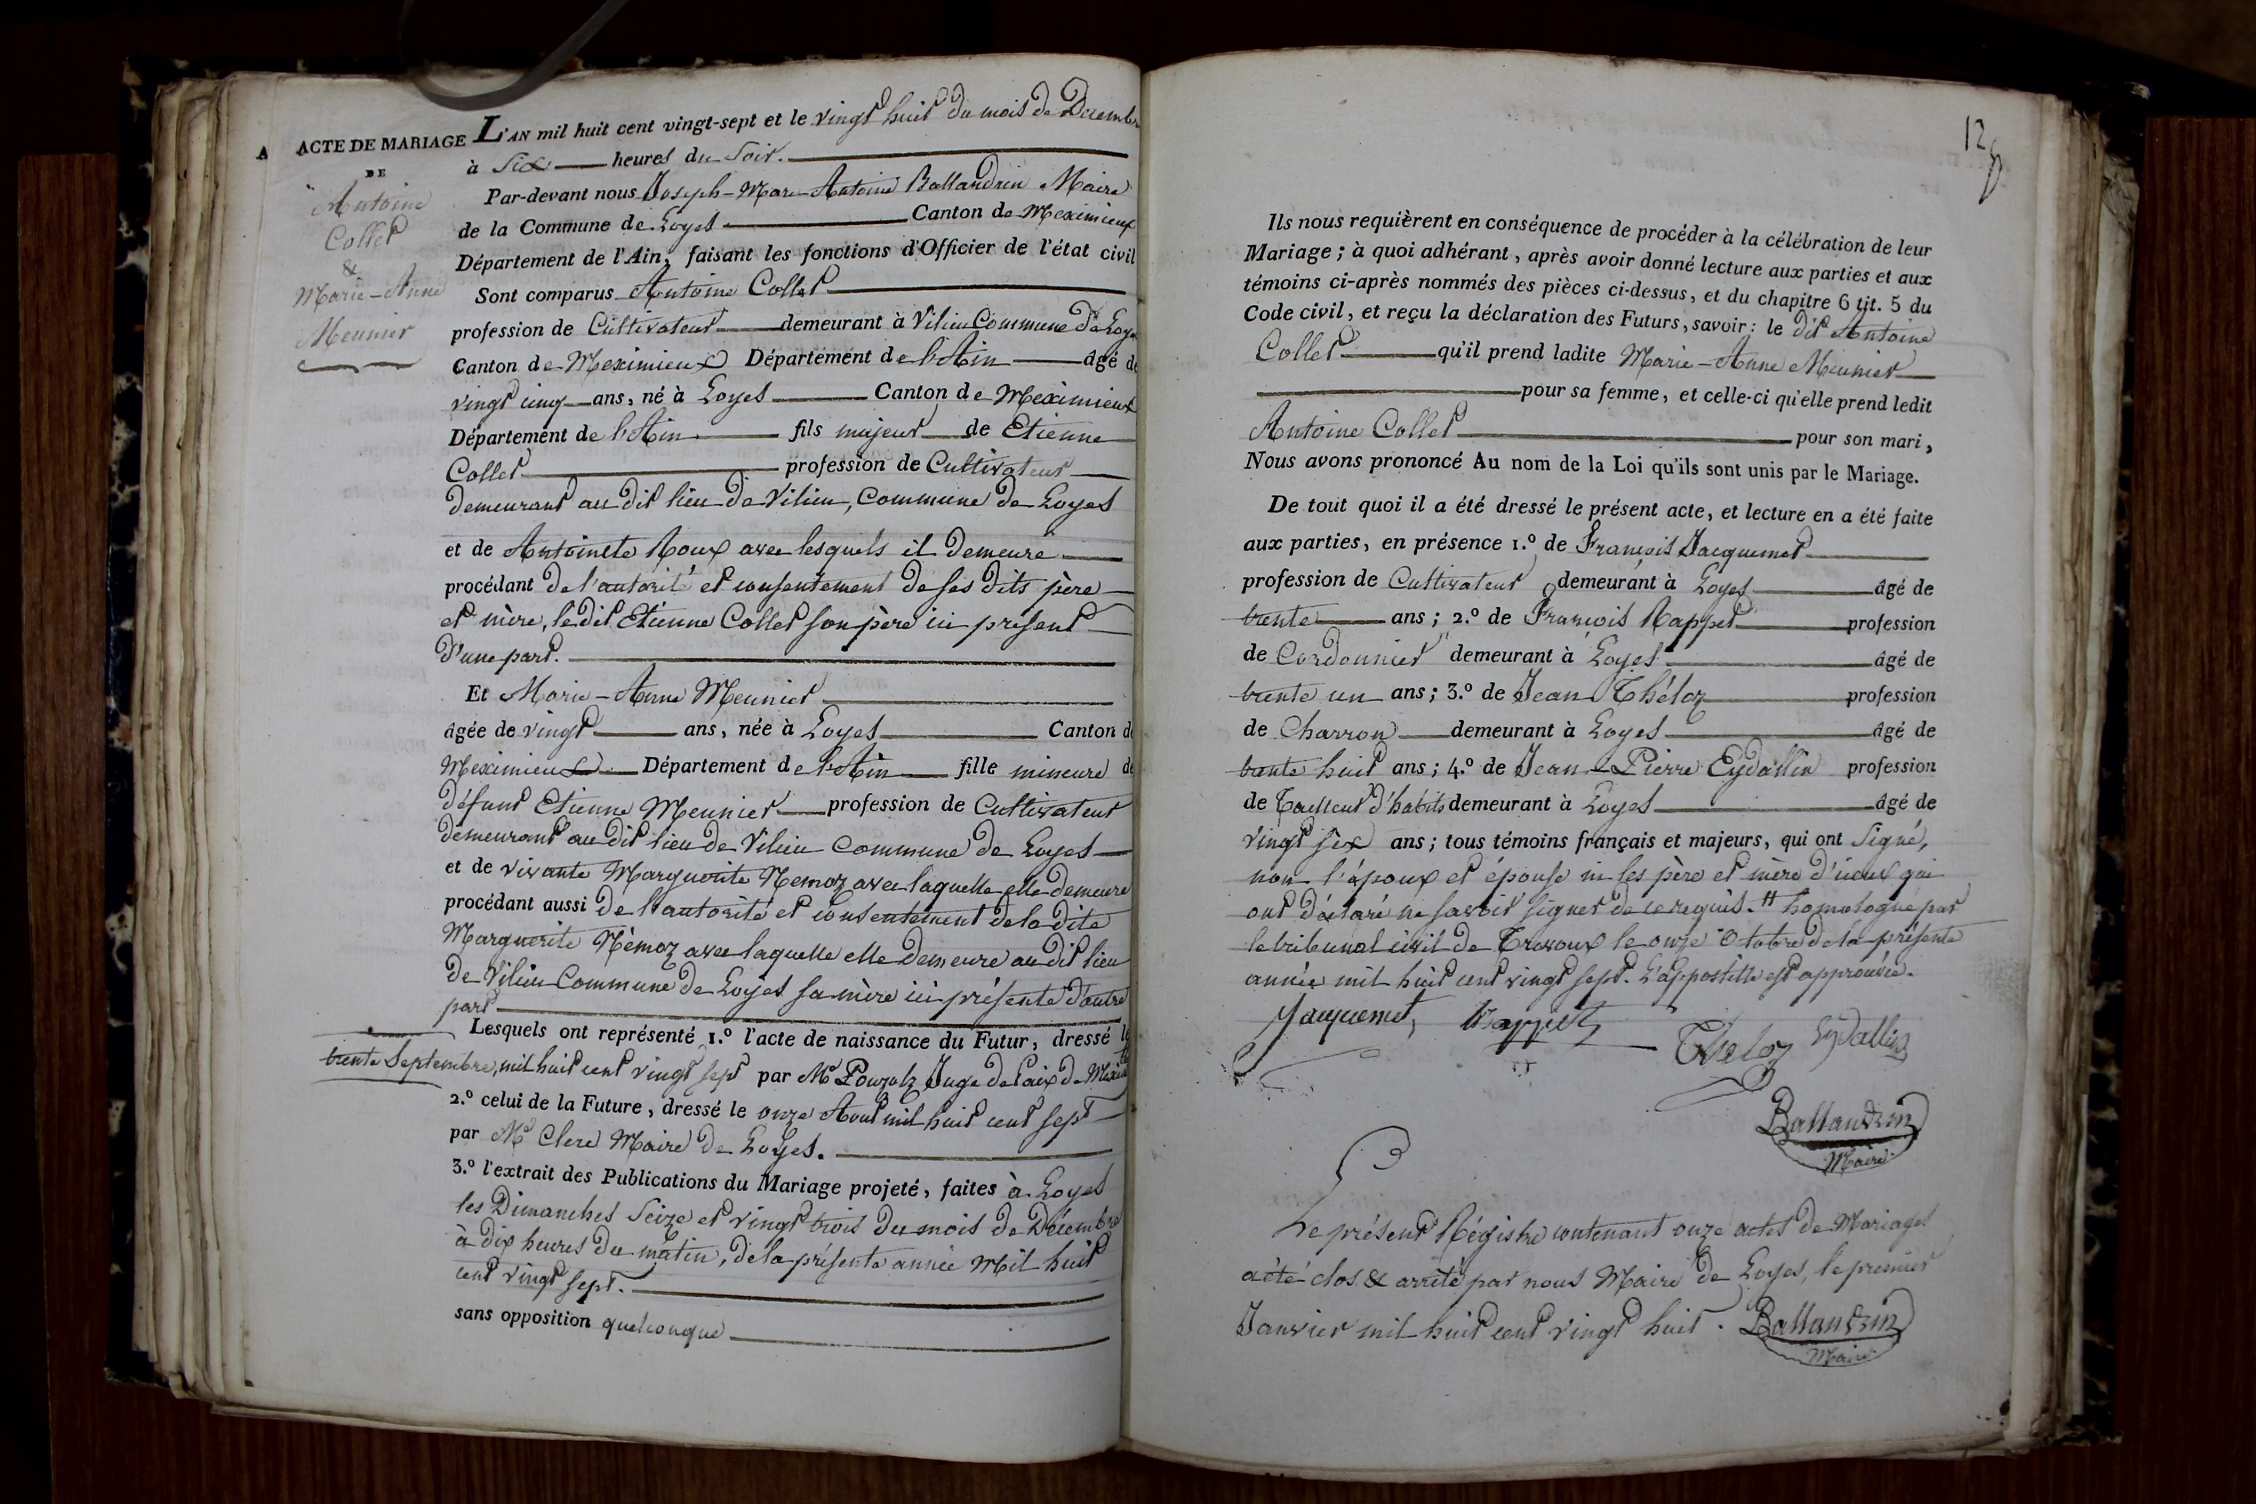 A ACTE DE MARIAGE
DE
Antoine
Collet
&
Marie-Anne
Meunier
L'AN mil huit cent vingt-sept et le vingt huit du mois de Décembre
à Six heures du Soir.
Par-devant nous Joseph-Marie-Antoine Ballandrin Maire
de la Commune de Loyes Canton de Meximieux
Département de l'Ain, faisant les fonctions d'Officier de l'état civil
Sont comparus Antoine Collet
profession de Cultivateur demeurant à Vilieu Commune de Loyes
Canton de Meximieux Département de l'Ain âgé de
vingt cinq ans, né à Loyes Canton de Meximieux
Département de l'Ain fils majeur de Etienne
Collet profession de Cultivateur
demeurant au dit lieu de Vilieu, Commune de Loyes
et de Antoinette Roux avec lesquels il demeure
procédant de l'autorité et consentement de ses dits père
et mère, le dit Etienne Collet son père ici présent
d'une part.
Et Marie-Anne Meunier
âgée de vingt ans, née à Loyes Canton de
Meximieux Département de l'Ain fille mineure de
défunt Etienne Meunier profession de Cultivateur
demeurant au dit lieu de Vilieu Commune de Loyes
et de vivante Marguerite Nemoz avec laquelle elle demeure
procédant aussi de l'autorité et consentement de la dite
Marguerite Nèmoz avec laquelle elle demeure au dit lieu
de Vilieu Commune de Loyes sa mère ici présente d'autre
part
Lesquels ont représenté 1.º l'acte de naissance du Futur, dressé le
trente Septembre, mil huit cent vingt sept par Mr Pouzolz Juge de Paix de
2.º celui de la Future, dressé le onze Aout mil huit cent sept
par Mr Clere Maire de Loyes.
3.º l'extrait des Publications du Mariage projeté, faites à Loyes
les Dimanches Seize et vingt trois du mois de Décembre
à dix heures du matin, de la présente année Mil huit
cent vingt sept.
sans opposition quelconque
12
Ils nous requièrent en conséquence de procéder à la célébration de leur
Mariage; à quoi adhérant, après avoir donné lecture aux parties et aux
témoins ci-après nommés des pièces ci-dessus, et du chapitre 6 tit. 5 du
Code civil, et reçu la déclaration des Futurs, savoir: le dit Antoine
Collet qu'il prend ladite Marie-Anne Meunier
pour sa femme, et celle-ci qu'elle prend ledit
Antoine Collet pour son mari,
Nous avons prononcé Au nom de la Loi qu'ils sont unis par le Mariage.
De tout quoi il a été dressé le présent acte, et lecture en a été faite
aux parties, en présence 1.º de François Jacquemet
profession de Cultivateur demeurant à Loyes âgé de
trente ans; 2.º de François Rappet profession
de Cordonnier demeurant à Loyes âgé de
trente un ans; 3.º de Jean Théloz profession
de Charron demeurant à Loyes âgé de
trente huit ans; 4.º de Jean-Pierre Eydallin profession
de Tailleur d'habits demeurant à Loyes âgé de
vingt six ans; tous témoins français et majeurs, qui ont Signé,
non l'époux et épouse ni les père et mère d'iceux qui
ont déclaré ne savoir signer de ce requis. # homologué par
le tribunal civil de Trevoux le onze Octobre de la présente
année mil huit cent vingt sept. L'appostille est approuvée.
Jacquemet, Rappet
Theloz Eydallin
Ballandrin
Maire
Le présent Régistre contenant onze actes de Mariages
a été clos & arrêté par nous Maire de Loyes, le premier
Janvier mil huit cent vingt huit. Ballandrin
Maire